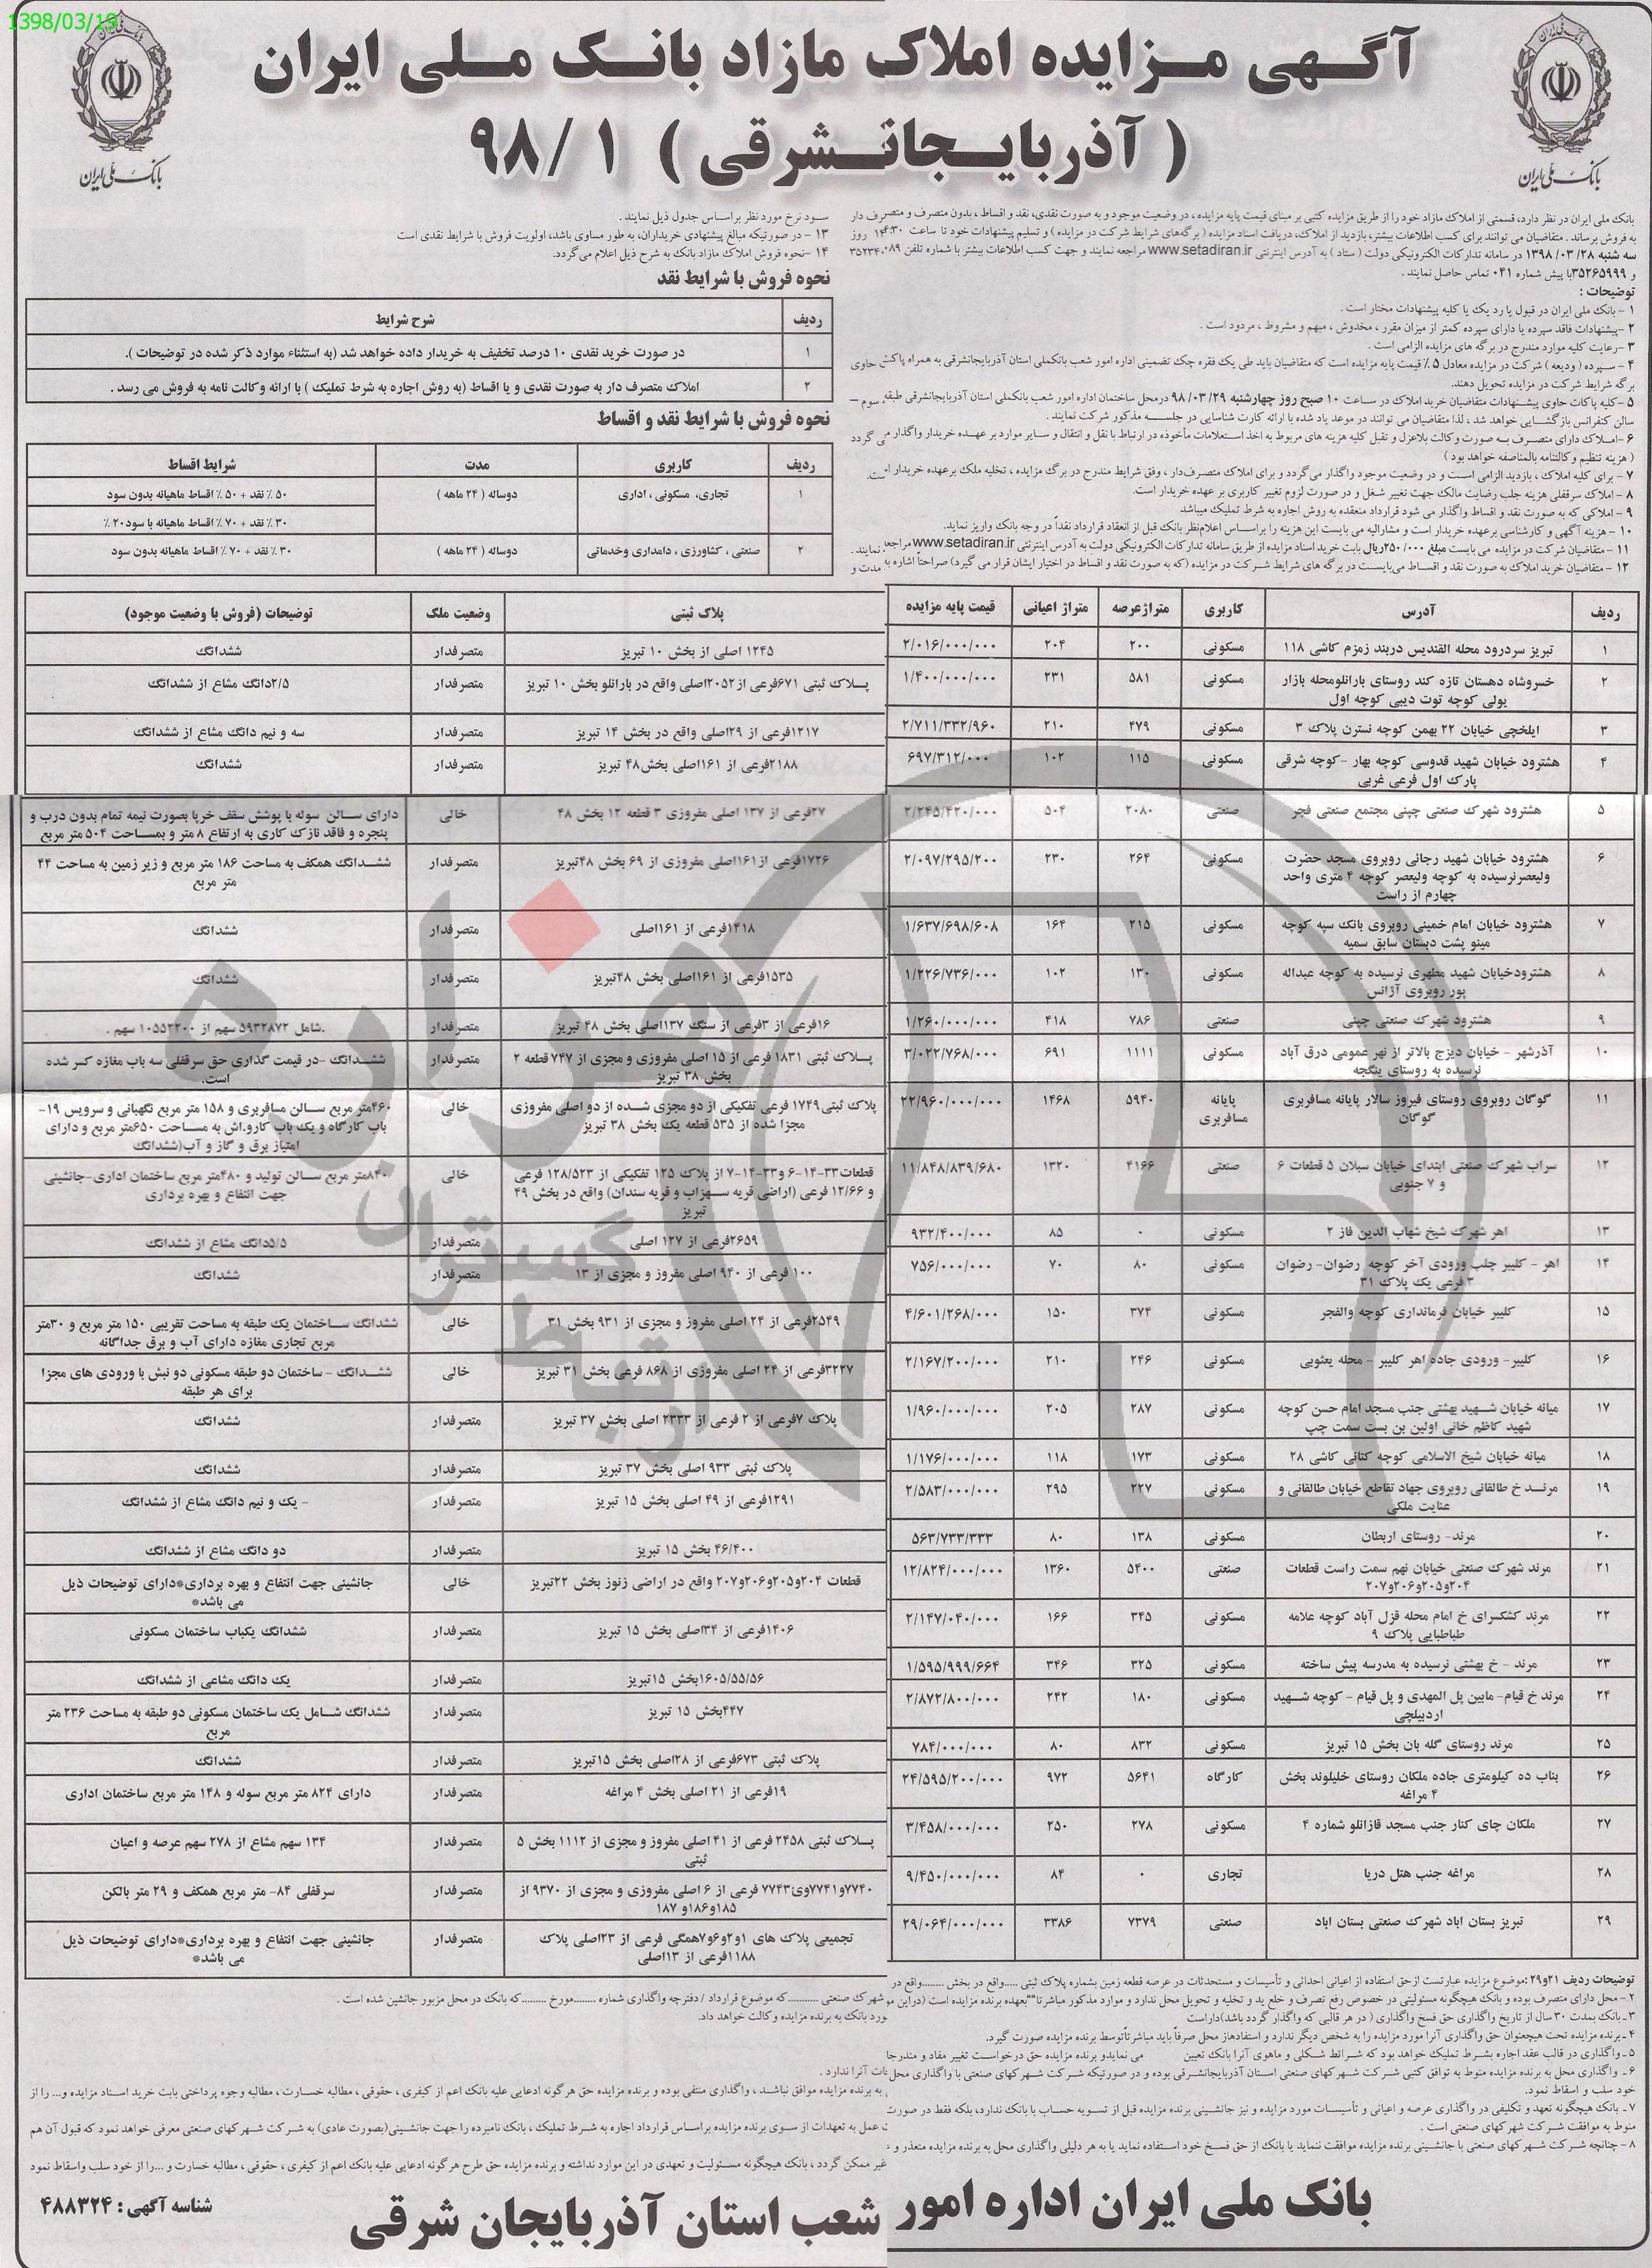 1398/03/19
آگهی مزایده املاک مازاد بانک ملی ایران
( آذربایجانشرقی ) ۹۸/۱
بانک ملی ایران
بانک ملی ایران
بانک ملی ایران در نظر دارد، قسمتی از املاک مازاد خود را از طریق مزایده کتبی بر مبنای قیمت پایه مزایده، در وضعیت موجود و به صورت نقدی، نقد و اقساط، بدون متصرف و متصرف دار
به فروش برساند. متقاضیان می توانند برای کسب اطلاعات بیشتر، بازدید از املاک، دریافت اسناد مزایده (برگه‌های شرایط شرکت در مزایده) و تسلیم پیشنهادات خود تا ساعت ۱۴:۳۰ روز
سه شنبه ۱۳۹۸/۰۳/۲۸ در سامانه تدارکات الکترونیکی دولت (ستاد) به آدرس اینترنتی www.setadiran.ir مراجعه نمایند و جهت کسب اطلاعات بیشتر با شماره تلفن
و ۳۵۲۶۵۹۹۹با پیش شماره ۰۴۱ تماس حاصل نمایند.
توضیحات :
۱ - بانک ملی ایران در قبول یا رد یک یا کلیه پیشنهادات مختار است .
۲ -پیشنهادات فاقد سپرده یا دارای سپرده کمتر از میزان مقرر ، مخدوش ، مبهم و مشروط ، مردود است .
۳ -رعایت کلیه موارد مندرج در برگه های مزایده الزامی است .
۴ - سپرده (ودیعه) شرکت در مزایده معادل ۵٪ قیمت پایه مزایده است که متقاضیان باید طی یک فقره چک تضمینی اداره امور شعب بانک‌ملی استان آذربایجانشرقی به همراه پاکت حاوی
برگه شرایط شرکت در مزایده تحویل دهند.
۵ -کلیه پاکات حاوی پیشنهادات متقاضیان خرید املاک در ساعت ۱۰ صبح روز چهارشنبه ۹۸/۰۳/۲۹ درمحل ساختمان اداره امور شعب بانکملی استان آذربایجانشرقی طبقه سوم –
سالن کنفرانس بازگشایی خواهد شد ، لذا متقاضیان می توانند در موعد یاد شده با ارائه کارت شناسایی در جلسه مذکور شرکت نمایند .
۶ -املاک دارای متصرف به صورت وکالت بلاعزل و تقبل کلیه هزینه های مربوط به اخذ استعلامات مأخوذه در ارتباط با نقل و انتقال و سایر موارد بر عهده خریدار واگذار می گردد
( هزینه تنظیم وکالتنامه بالمناصفه خواهد بود )
۷ - برای کلیه املاک ، بازدید الزامی است و در وضعیت موجود واگذار می‌گردد و برای املاک متصرف‌دار ، وفق شرایط مندرج در برگ مزایده ، تخلیه ملک برعهده خریدار است.
۸ - املاک سرقفلی هزینه جلب رضایت مالک جهت تغییر شغل و در صورت لزوم تغییر کاربری بر عهده خریدار است.
۹ - املاکی که به صورت نقد و اقساط واگذار می شود قرارداد منعقده به روش اجاره به شرط تملیک میباشد
۱۰ - هزینه آگهی و کارشناسی برعهده خریدار است و مشارالیه می بایست این هزینه را براساس اعلام‌نظر بانک قبل از انعقاد قرارداد نقداً در وجه بانک واریز نماید.
۱۱ - متقاضیان شرکت در مزایده می بایست مبلغ ۲۵۰/۰۰۰ریال بابت خرید اسناد مزایده از طریق سامانه تدارکات الکترونیکی دولت به آدرس اینترنتی www.setadiran.ir مراجعه نمایند.
۱۲ - متقاضیان خرید املاک به صورت نقد و اقساط می‌بایست در برگه های شرایط شرکت در مزایده (که به صورت نقد و اقساط در اختیار ایشان قرار می گیرد) صراحتاً اشاره به مدت و
سود نرخ مورد نظر براساس جدول ذیل نمایند .
۱۳ - در صورتیکه مبالغ پیشنهادی خریداران، به طور مساوی باشد، اولویت فروش با شرایط نقدی است
۱۴ -نحوه فروش املاک مازاد بانک به شرح ذیل اعلام می‌گردد.
نحوه فروش با شرایط نقد
ردیف شرح شرایط
۱ در صورت خرید نقدی ۱۰ درصد تخفیف به خریدار داده خواهد شد (به استثناء موارد ذکر شده در توضیحات ).
۲ املاک متصرف دار به صورت نقدی و یا اقساط (به روش اجاره به شرط تملیک ) با ارائه وکالت نامه به فروش می رسد .
نحوه فروش با شرایط نقد و اقساط
ردیف کاربری مدت شرایط اقساط
۱ تجاری، مسکونی ، اداری دوساله ( ۲۴ ماهه ) ۵۰٪ نقد + ۵۰٪ اقساط ماهیانه بدون سود
۳۰٪ نقد + ۷۰٪ اقساط ماهیانه با سود ۲۰٪
۲ صنعتی ، کشاورزی ، دامداری وخدماتی دوساله ( ۲۴ ماهه ) ۳۰٪ نقد + ۷۰٪ اقساط ماهیانه بدون سود
ردیف آدرس کاربری متراژعرصه متراژ اعیانی قیمت پایه مزایده پلاک ثبتی وضعیت ملک توضیحات (فروش با وضعیت موجود)
۱ تبریز سردرود محله القندیس دربند زمزم کاشی ۱۱۸ مسکونی ۲۰۰ ۲۰۴ ۲/۰۱۶/۰۰۰/۰۰۰ ۱۲۴۵ اصلی از بخش ۱۰ تبریز متصرفدار ششدانگ
۲ خسروشاه دهستان تازه کند روستای بارانلومحله بازار مسکونی ۵۸۱ ۲۳۱ ۱/۴۰۰/۰۰۰/۰۰۰ پلاک ثبتی ۶۷۱فرعی از۲۰۵۲اصلی واقع در بارانلو بخش ۱۰ تبریز متصرفدار ۲/۵دانگ مشاع از ششدانگ
یولی کوچه توت دیبی کوچه اول
۳ ایلخچی خیابان ۲۲ بهمن کوچه نسترن پلاک ۳ مسکونی ۴۷۹ ۲۱۰ ۲/۷۱۱/۳۳۲/۹۶۰ ۱۲۱۷فرعی از ۲۹اصلی واقع در بخش ۱۴ تبریز متصرفدار سه و نیم دانگ مشاع از ششدانگ
۴ هشترود خیابان شهید قدوسی کوچه بهار -کوچه شرقی مسکونی ۱۱۵ ۱۰۲ ۶۹۷/۳۱۲/۰۰۰ ۲۱۸۸فرعی از ۱۶۱اصلی بخش۴۸ تبریز متصرفدار ششدانگ
پارک اول فرعی غربی
۵ هشترود شهرک صنعتی چپنی مجتمع صنعتی فجر صنعتی ۲۰۸۰ ۵۰۴ ۲/۲۴۵/۴۲۰/۰۰۰ ۲۷فرعی از ۱۳۷ اصلی مفروزی ۳ قطعه ۱۲ بخش ۴۸ خالی دارای سالن سوله با پوشش سقف خرپا بصورت نیمه تمام بدون درب و
پنجره و فاقد نازک کاری به ارتفاع ۸ متر و بمساحت ۵۰۴ متر مربع
۶ هشترود خیابان شهید رجائی روبروی مسجد حضرت مسکونی ۲۶۴ ۲۳۰ ۲/۰۹۷/۲۹۵/۲۰۰ ۱۷۲۶فرعی از۱۶۱اصلی مفروزی از ۶۹ بخش ۴۸تبریز متصرفدار ششدانگ همکف به مساحت ۱۸۶ متر مربع و زیر زمین به مساحت ۴۴
ولیعصرنرسیده به کوچه ولیعصر کوچه ۴ متری واحد متر مربع
چهارم از راست
۷ هشترود خیابان امام خمینی روبروی بانک سپه کوچه مسکونی ۲۱۵ ۱۶۴ ۱/۶۳۷/۶۹۸/۶۰۸ ۱۴۱۸فرعی از ۱۶۱اصلی متصرفدار ششدانگ
مینو پشت دبستان سابق سمیه
۸ هشترودخیابان شهید مطهری نرسیده به کوچه عبداله مسکونی ۱۳۰ ۱۰۲ ۱/۲۲۶/۷۳۶/۰۰۰ ۱۵۳۵فرعی از ۱۶۱اصلی بخش ۴۸تبریز متصرفدار ششدانگ
پور روبروی آژانس
۹ هشترود شهرک صنعتی چپنی صنعتی ۷۸۶ ۴۱۸ ۱/۲۶۰/۰۰۰/۰۰۰ ۱۶فرعی از ۳فرعی از سنگ ۱۳۷اصلی بخش ۴۸ تبریز متصرفدار .شامل ۵۹۳۲۸۷۲ سهم از ۱۰۵۵۲۲۰۰ سهم .
۱۰ آذرشهر - خیابان دیزج بالاتر از نهر عمومی درق آباد مسکونی ۱۱۱۱ ۶۹۱ ۳/۰۲۲/۷۶۸/۰۰۰ پلاک ثبتی ۱۸۳۱ فرعی از ۱۵ اصلی مفروزی و مجزی از ۷۴۷ قطعه ۲ متصرفدار ششدانگ -در قیمت گذاری حق سرقفلی سه باب مغازه کسر شده
نرسیده به روستای ینگجه بخش ۳۸ تبریز است.
۱۱ گوگان روبروی روستای فیروز سالار پایانه مسافربری پایانه ۵۹۴۰ ۱۴۶۸ ۲۲/۹۶۰/۰۰۰/۰۰۰ پلاک ثبتی۱۷۴۹ فرعی تفکیکی از دو مجزی شده از دو اصلی مفروزی خالی ۴۶۰متر مربع سالن مسافربری و ۱۵۸ متر مربع نگهبانی و سرویس ۱۹-
گوگان مسافربری مجزا شده از ۵۳۵ قطعه یک بخش ۳۸ تبریز باب کارگاه و یک باب کارو.اش به مساحت ۶۵۰متر مربع و دارای
امتیاز برق و گاز و آب(ششدانگ
۱۲ سراب شهرک صنعتی ابتدای خیابان سبلان ۵ قطعات ۶ صنعتی ۴۱۶۶ ۱۳۲۰ ۱۱/۸۴۸/۸۳۹/۶۸۰ قطعات۳۳-۱۴-۶ و۳۳-۱۴-۷ از پلاک ۱۲۵ تفکیکی از ۱۲۸/۵۲۳ فرعی خالی ۸۴۰متر مربع سالن تولید و ۴۸۰متر مربع ساختمان اداری-جانشینی
و ۷ جنوبی و ۱۲/۶۶ فرعی (اراضی قریه سهزاب و قریه سندان) واقع در بخش ۴۹ جهت انتفاع و بهره برداری
تبریز
۱۳ اهر شهرک شیخ شهاب الدین فاز ۲ مسکونی ۰ ۸۵ ۹۳۲/۴۰۰/۰۰۰ ۲۶۵۹فرعی از ۱۲۷ اصلی متصرفدار ۵/۵دانگ مشاع از ششدانگ
۱۴ اهر - کلیبر چلب ورودی آخر کوچه رضوان- رضوان مسکونی ۸۰ ۷۰ ۷۵۶/۰۰۰/۰۰۰ ۱۰۰ فرعی از ۹۴۰ اصلی مفروز و مجزی از ۱۳ متصرفدار ششدانگ
۳ فرعی یک پلاک ۳۱
۱۵ کلیبر خیابان فرمانداری کوچه والفجر مسکونی ۳۷۴ ۱۵۰ ۴/۶۰۱/۲۶۸/۰۰۰ ۲۵۴۹فرعی از ۲۴ اصلی مفروز و مجزی از ۹۳۱ بخش ۳۱ خالی ششدانگ ساختمان یک طبقه به مساحت تقریبی ۱۵۰ متر مربع و ۳۰متر
مربع تجاری مغازه دارای آب و برق جداگانه
۱۶ کلیبر- ورودی جاده اهر کلیبر - محله یعثوبی مسکونی ۲۴۶ ۲۱۰ ۲/۱۶۷/۲۰۰/۰۰۰ ۳۲۲۷فرعی از ۲۴ اصلی مفروزی از ۸۶۸ فرعی بخش ۳۱ تبریز خالی ششدانگ - ساختمان دو طبقه مسکونی دو نبش با ورودی های مجزا
برای هر طبقه
۱۷ میانه خیابان شهید بهشتی جنب مسجد امام حسن کوچه مسکونی ۲۸۷ ۲۰۵ ۱/۹۶۰/۰۰۰/۰۰۰ پلاک ۷فرعی از ۲ فرعی از ۲۳۳۳ اصلی بخش ۳۷ تبریز متصرفدار ششدانگ
شهید کاظم خانی اولین بن بست سمت چپ
۱۸ میانه خیابان شیخ الاسلامی کوچه کتانی کاشی ۲۸ مسکونی ۱۷۳ ۱۱۸ ۱/۱۷۶/۰۰۰/۰۰۰ پلاک ثبتی ۹۳۳ اصلی بخش ۳۷ تبریز متصرفدار ششدانگ
۱۹ مرند خ طالقانی روبروی جهاد تقاطع خیابان طالقانی و مسکونی ۲۲۷ ۲۹۵ ۲/۵۸۳/۰۰۰/۰۰۰ ۱۲۹۱فرعی از ۴۹ اصلی بخش ۱۵ تبریز متصرفدار - یک و نیم دانگ مشاع از ششدانگ
عنایت ملکی
۲۰ مرند- روستای اربطان مسکونی ۱۳۸ ۸۰ ۵۶۳/۷۳۳/۳۳۳ ۴۶/۴۰۰ بخش ۱۵ تبریز متصرفدار دو دانگ مشاع از ششدانگ
۲۱ مرند شهرک صنعتی خیابان نهم سمت راست قطعات صنعتی ۵۴۰۰ ۱۳۶۰ ۱۲/۸۲۴/۰۰۰/۰۰۰ قطعات ۲۰۴و۲۰۵و۲۰۶و۲۰۷ واقع در اراضی زنوز بخش ۲۲تبریز خالی جانشینی جهت انتفاع و بهره برداری*دارای توضیحات ذیل
۲۰۴و۲۰۵و۲۰۶و۲۰۷ می باشد*
۲۲ مرند کشکسرای خ امام محله قزل آباد کوچه علامه مسکونی ۳۴۵ ۱۶۶ ۲/۱۴۷/۰۴۰/۰۰۰ ۱۴۰۶فرعی از ۳۴اصلی بخش ۱۵ تبریز متصرفدار ششدانگ یکباب ساختمان مسکونی
طباطبایی پلاک ۹
۲۳ مرند - خ بهشتی نرسیده به مدرسه پیش ساخته مسکونی ۳۲۵ ۳۴۶ ۱/۵۹۵/۹۹۹/۶۶۴ ۱۶۰۵/۵۵/۵۶بخش ۱۵تبریز متصرفدار یک دانگ مشاعی از ششدانگ
۲۴ مرند خ قیام- مابین پل المهدی و پل قیام - کوچه شهید مسکونی ۱۸۰ ۲۴۲ ۲/۸۷۲/۸۰۰/۰۰۰ ۴۴۷بخش ۱۵ تبریز متصرفدار ششدانگ شامل یک ساختمان مسکونی دو طبقه به مساحت ۲۳۶ متر
اردبیلچی مربع
۲۵ مرند روستای گله بان بخش ۱۵ تبریز مسکونی ۸۳۲ ۸۰ ۷۸۴/۰۰۰/۰۰۰ پلاک ثبتی ۶۷۳فرعی از ۲۸اصلی بخش ۱۵تبریز متصرفدار ششدانگ
۲۶ بناب ده کیلومتری جاده ملکان روستای خلیلوند بخش کارگاه ۵۶۴۱ ۹۷۲ ۲۴/۵۹۵/۲۰۰/۰۰۰ ۱۹فرعی از ۲۱ اصلی بخش ۴ مراغه متصرفدار دارای ۸۲۴ متر مربع سوله و ۱۴۸ متر مربع ساختمان اداری
۴ مراغه
۲۷ ملکان چای کنار جنب مسجد قازانلو شماره ۴ مسکونی ۲۷۸ ۲۵۰ ۳/۴۵۸/۰۰۰/۰۰۰ پلاک ثبتی ۲۴۵۸ فرعی از ۴۱ اصلی مفروز و مجزی از ۱۱۱۲ بخش ۵ متصرفدار ۱۳۴ سهم مشاع از ۲۷۸ سهم عرصه و اعیان
ثبتی
۲۸ مراغه جنب هتل دریا تجاری ۰ ۸۴ ۹/۴۵۰/۰۰۰/۰۰۰ ۷۷۴۰و۷۷۴۱و۷۷۴۳ فرعی از ۶ اصلی مفروزی و مجزی از ۹۳۷۰ از متصرفدار سرقفلی ۸۴- متر مربع همکف و ۲۹ متر بالکن
۱۸۵و۱۸۶و ۱۸۷
۲۹ تبریز بستان اباد شهرک صنعتی بستان اباد صنعتی ۷۳۷۹ ۳۳۸۶ ۲۹/۰۶۴/۰۰۰/۰۰۰ تجمیعی پلاک های ۱و۲و۶و۷همگی فرعی از ۲۳اصلی پلاک متصرفدار جانشینی جهت انتفاع و بهره برداری*دارای توضیحات ذیل
۱۱۸۸فرعی از ۱۳اصلی می باشد*
توضیحات ردیف ۲۱و۲۹ :موضوع مزایده عبارتست ازحق استفاده از اعیانی احداثی و تأسیسات و مستحدثات در عرصه قطعه زمین بشماره پلاک ثبتی .....واقع در بخش ........واقع در
شهرک صنعتی ..........که موضوع قرارداد / دفترچه واگذاری شماره ........مورخ .........که بانک در محل مزبور جانشین شده است .
۲- محل دارای متصرف بوده و بانک هیچگونه مسئولیتی در خصوص رفع تصرف و خلع ید و تخلیه و تحویل محل ندارد و موارد مذکور مباشرتا""بعهده برنده مزایده است
ورد بانک به برنده مزایده وکالت خواهد داد.
۳ـ بانک بمدت ۳۰ سال از تاریخ واگذاری حق فسخ واگذاری ( در هر قالبی که واگذار گردد باشد)داراست
۴ ـ برنده مزایده تحت هیچعنوان حق واگذاری آنرا مورد مزایده را به شخص دیگر ندارد و استفادهاز محل صرفاً باید مباشرتاًتوسط برنده مزایده صورت گیرد.
۵ ـ واگذاری در قالب عقد اجاره بشرط تملیک خواهد بود که شرائط شکلی و ماهوی آنرا بانک تعیین می نمایدو برنده مزایده حق درخواست تغییر مفاد و مندرجات آنرا ندارد .
۶ ـ واگذاری محل به برنده مزایده منوط به توافق کتبی شرکت شهرکهای صنعتی استان آذربایجانشرقی بوده و در صورتیکه شرکت شهرکهای صنعتی با واگذاری محل
به برنده مزایده موافق نباشد ، واگذاری منتفی بوده و برنده مزایده حق هرگونه ادعایی علیه بانک اعم از کیفری ، حقوقی ، مطالبه خسارت ، مطالبه وجوه پرداختی بابت خرید اسناد مزایده و... را از
خود سلب و اسقاط نمود.
۷ ـ بانک هیچگونه تعهد و تکلیفی در واگذاری عرصه و اعیانی و تأسیسات مورد مزایده و نیز جانشینی برنده مزایده قبل از تسویه حساب با بانک ندارد، بلکه فقط در صورت
عمل به تعهدات از سوی برنده مزایده براساس قرارداد اجاره به شرط تملیک ، بانک نامبرده را جهت جانشینی(بصورت عادی) به شرکت شهرکهای صنعتی معرفی خواهد نمود که قبول آن هم
منوط به موافقت شرکت شهرکهای صنعتی است .
۸ - چنانچه شرکت شهرکهای صنعتی با جانشینی برنده مزایده موافقت ننماید یا بانک از حق فسخ خود استفاده نماید یا به هر دلیلی واگذاری محل به برنده مزایده متعذر و
غیر ممکن گردد ، بانک هیچگونه مسئولیت و تعهدی در این موارد نداشته و برنده مزایده حق طرح هرگونه ادعایی علیه بانک اعم از کیفری ، حقوقی ، مطالبه خسارت و ...را از خود سلب واسقاط نمود
بانک ملی ایران اداره امور شعب استان آذربایجان شرقی
شناسه آگهی : ۴۸۸۳۲۴